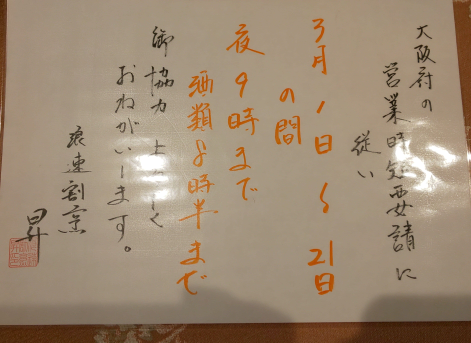 大阪府の
営業時短要請に
従い
3月1日〜21日
の間
夜9時まで
酒類8時半まで
御協力よろしく
おねがいします。
浪速割烹
昇